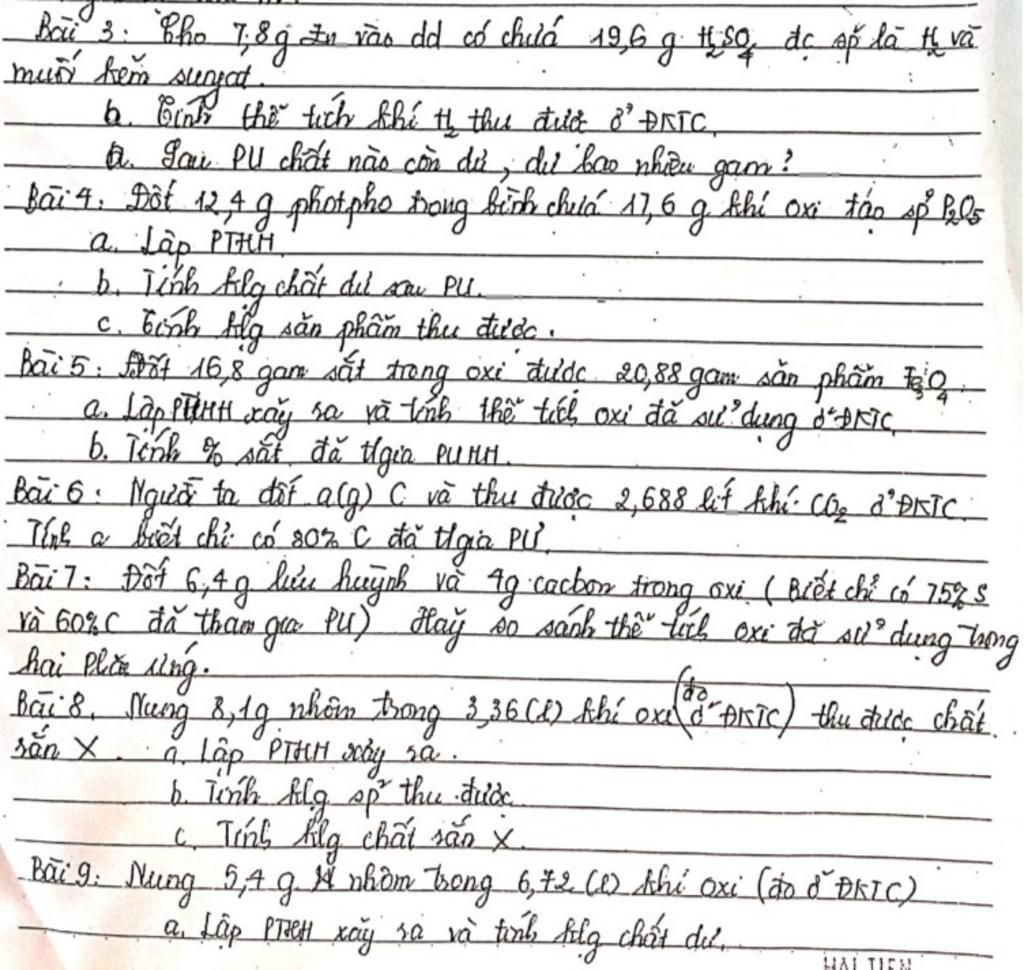 Bài 3: Cho 7,8g Zn vào dd có chứa 19,6 g H₂SO₄ đc sp là H₂ và
muối kẽm sunfat.
b. Tính thể tích khí H₂ thu được ở ĐKTC.
a. Sau PU chất nào còn dư, dư bao nhiêu gam?
Bài 4: Đốt 12,4 g photpho trong bình chứa 17,6 g khí oxi tạo sp P₂O₅
a. Lập PTHH.
b. Tính klg chất dư sau PU.
c. Tính klg sản phẩm thu được.
Bài 5: Đốt 16,8 gam sắt trong oxi được 20,88 gam sản phẩm Fe₃O₄.
a. Lập PTHH xảy ra và tính thể tích oxi đã sử dụng ở ĐKTC.
b. Tính % sắt đã tgia PUHH.
Bài 6: Người ta đốt a(g) C và thu được 2,688 lít khí CO₂ ở ĐKTC.
Tính a biết chỉ có 80% C đã tgia PƯ.
Bài 7: Đốt 6,4g lưu huỳnh và 4g cacbon trong oxi (Biết chỉ có 75% S
và 60%C đã tham gia PU) Hãy so sánh thể tích oxi đã sử dụng trong
hai phản ứng.
Bài 8. Nung 8,1g nhôm trong 3,36(l) khí oxi (đo ở ĐKTC) thu được chất
rắn X. a. Lập PTHH xảy ra.
b. Tính klg sp thu được
c. Tính klg chất rắn X
Bài 9: Nung 5,4 g nhôm trong 6,72(l) khí oxi (đo ở ĐKTC)
a. Lập PTHH xảy ra và tính klg chất dư.
HAI TIEN